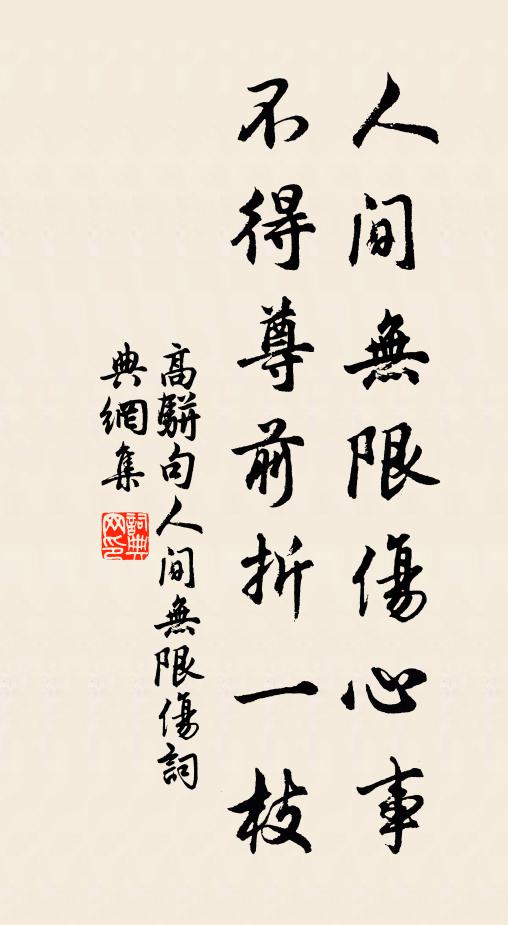 人間無限傷心事
不得尊前折一枝
高駢句人間無限傷詞
典網集
詞典
网印